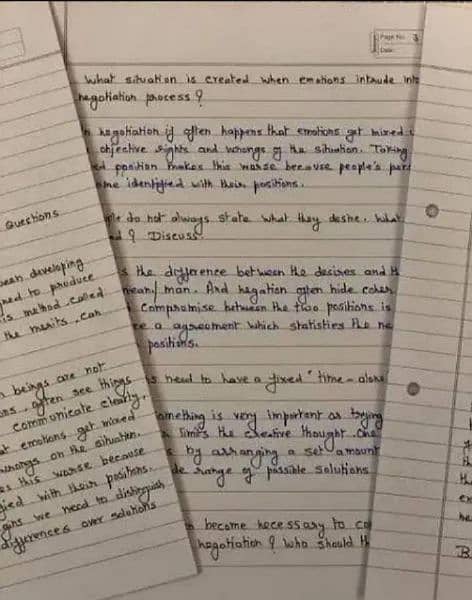 Page No. 3
Date:
What situation is created when emotions intrude into
negotiation process?
negotiation if often happens that emotions get mixed
objective rights and wrongs of the situation. Taking
position makes this worse because people's
identified with their positions.
do not always state what they desire. What
? Discuss.
the difference between the desires and
man. And negation often hide
Compromise between the two positions is
a agreement which statisties the ne
positions.
need to have a fixed "time - alone
something is very important as trying
limits the creative thought. One
by arranging a set amount
range of possible solutions
become necessary to co
negotiation? Who should th
Questions
been developing
to produce
is method called
the merits, can
beings are not
often see things
communicate clearly.
emotions get mixed
wrongs on the situation.
this worse because
with their positions.
we need to distinguish
differences over solutions